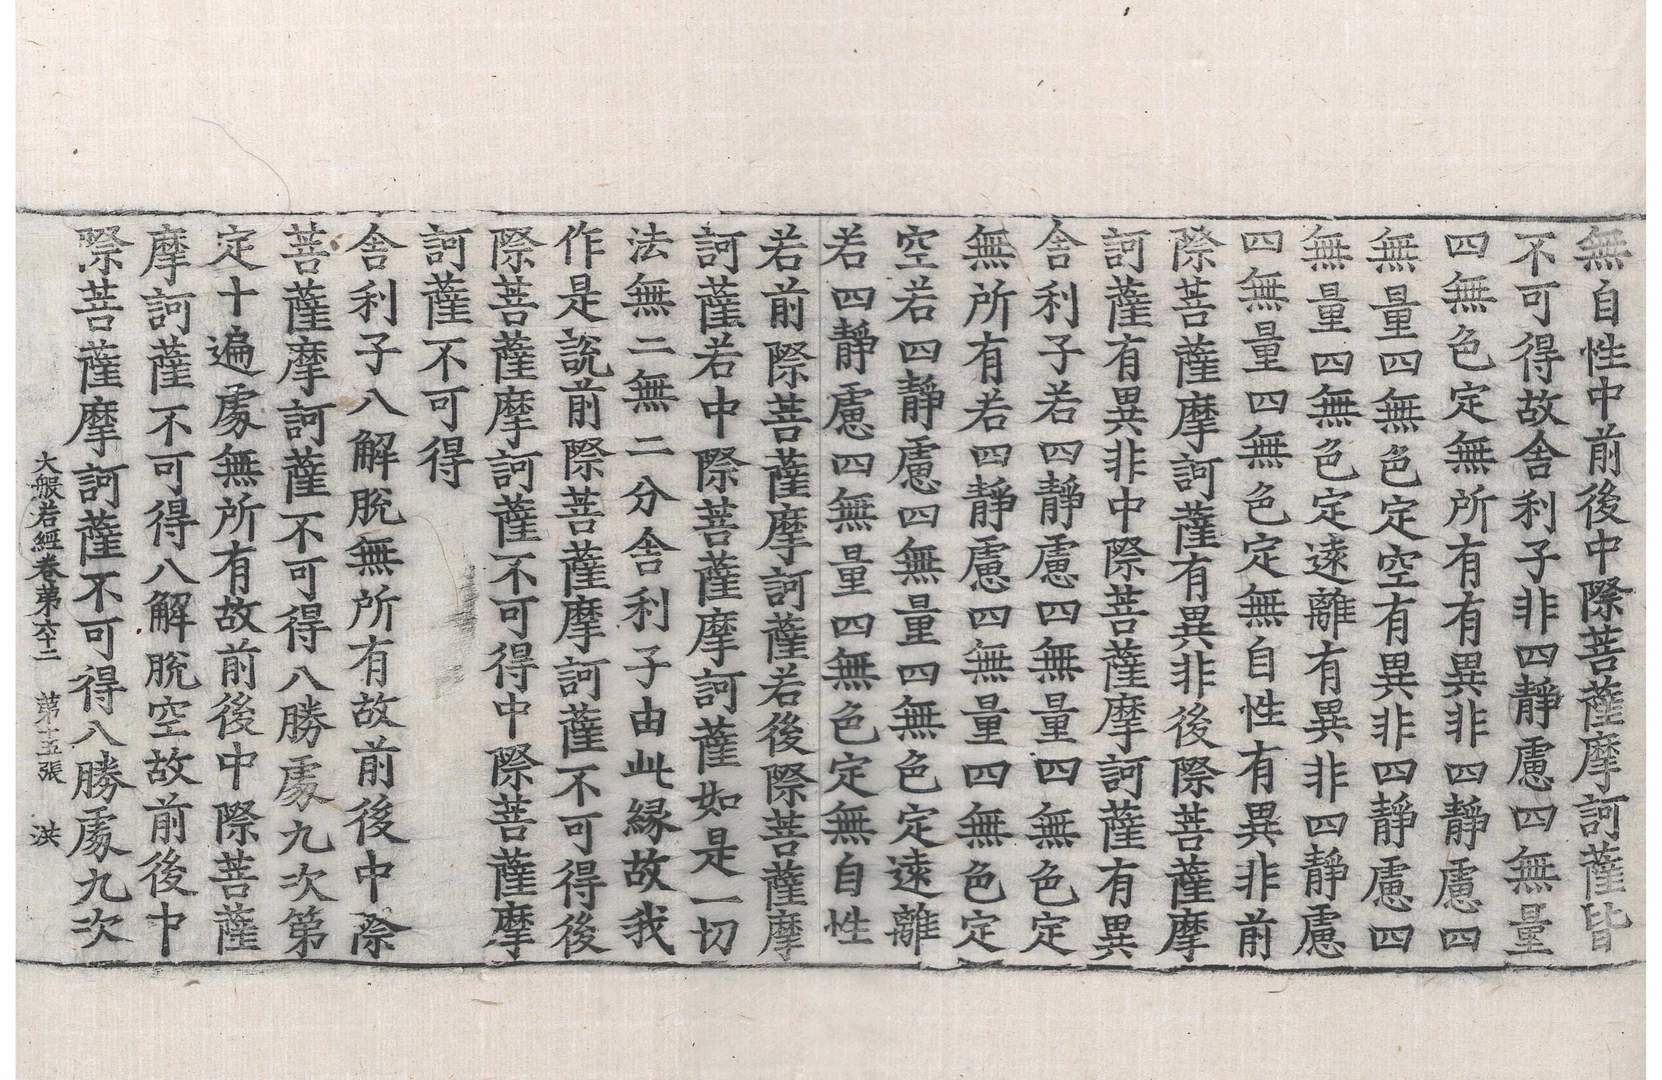 無自性中前後中際菩薩摩訶薩皆
不可得故舍利子非四靜慮四無量
四無色定無所有有異非四靜慮四
無量四無色定空有異非四靜慮四
無量四無色定遠離有異非四靜慮
四無量四無色定無自性有異非前
際菩薩摩訶薩有異非後際菩薩摩
訶薩有異非中際菩薩摩訶薩有異
舍利子若四靜慮四無量四無色定
無所有若四靜慮四無量四無色定
空若四靜慮四無量四無色定遠離
若四靜慮四無量四無色定無自性
若前際菩薩摩訶薩若後際菩薩摩
訶薩若中際菩薩摩訶薩如是一切
法無二無二分舍利子由此緣故我
作是說前際菩薩摩訶薩不可得後
際菩薩摩訶薩不可得中際菩薩摩
訶薩不可得
舍利子八解脫無所有故前後中際
菩薩摩訶薩不可得八勝處九次第
定十遍處無所有故前後中際菩薩
摩訶薩不可得八解脫空故前後中
際菩薩摩訶薩不可得八勝處九次
大般若經卷第六十二 第十五張 洪